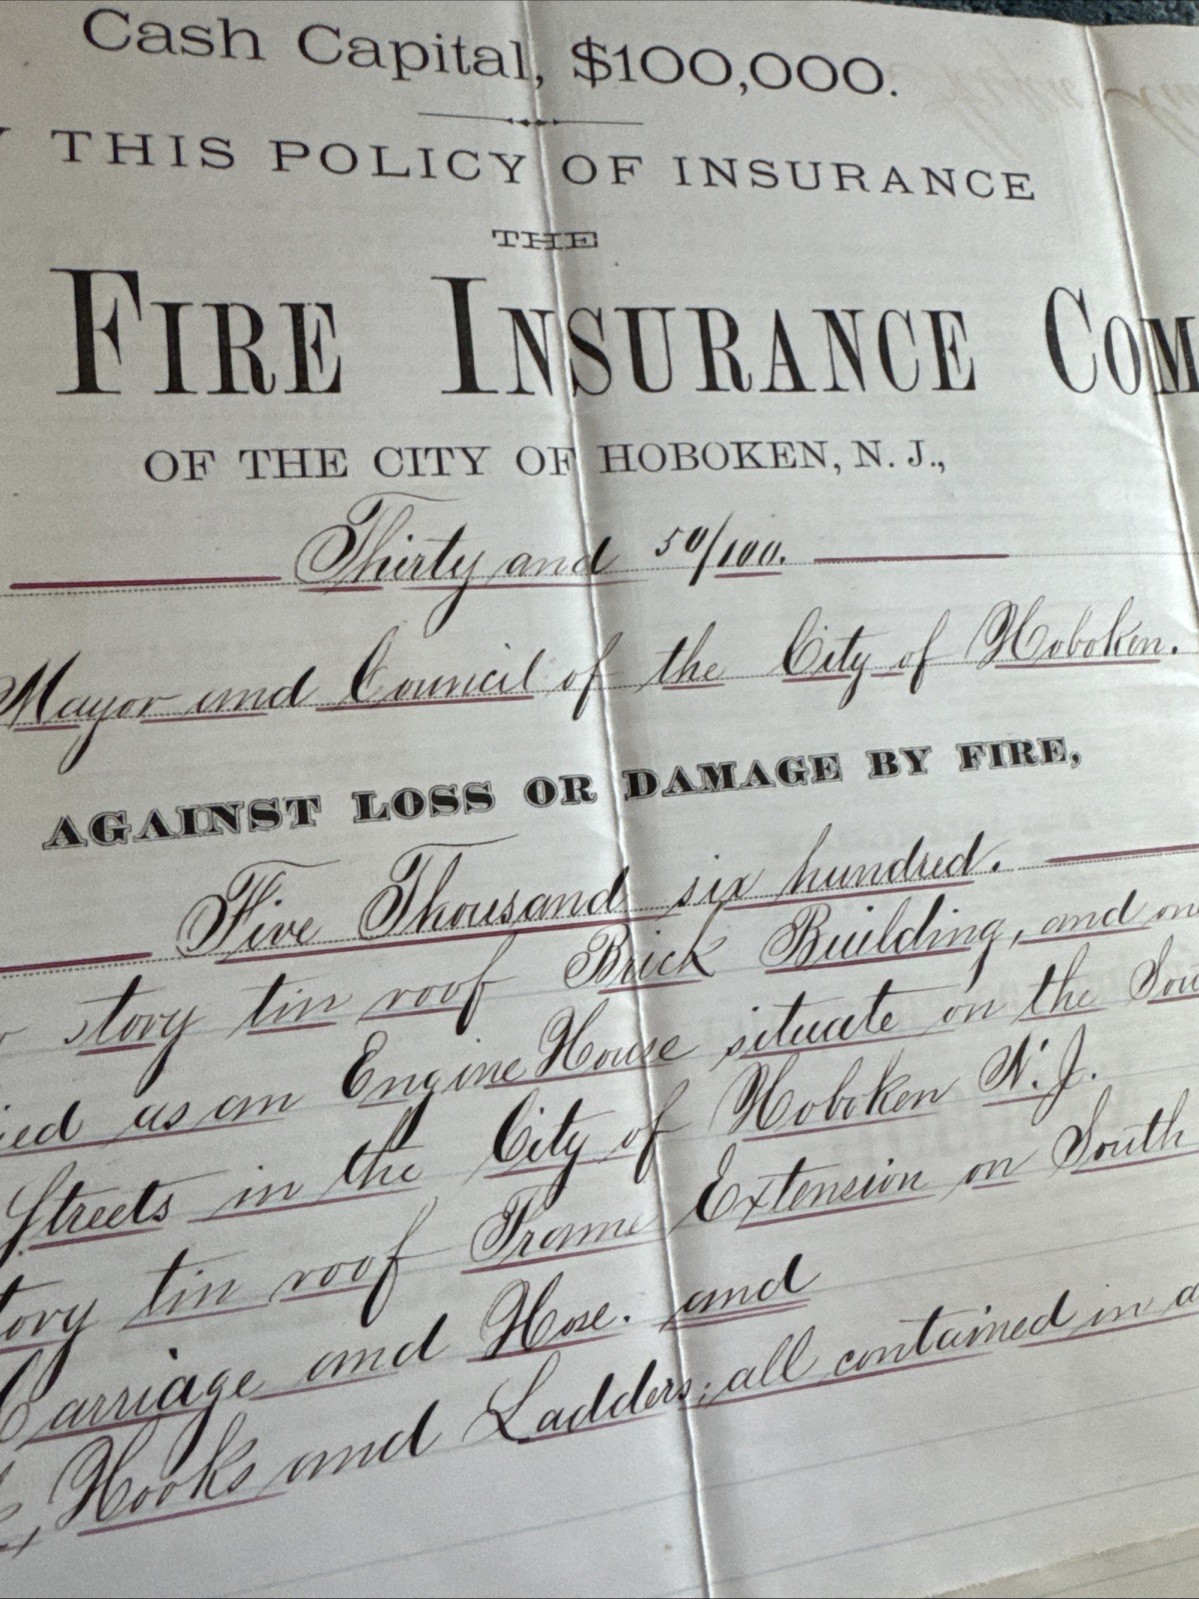 Cash Capital, $100,000.
THIS POLICY OF INSURANCE
THE
FIRE INSURANCE COM
OF THE CITY OF HOBOKEN, N. J.,
Thirty and 50/100.
Mayor and Council of the City of Hoboken.
AGAINST LOSS OR DAMAGE BY FIRE,
Five Thousand six hundred.
story tin roof Brick Building, and on
ied as an Engine House situate on the Sou
Streets in the City of Hoboken N. J.
tory tin roof Frame Extension on South
Carriage and Hose. and
Hooks and Ladders; all contained in a